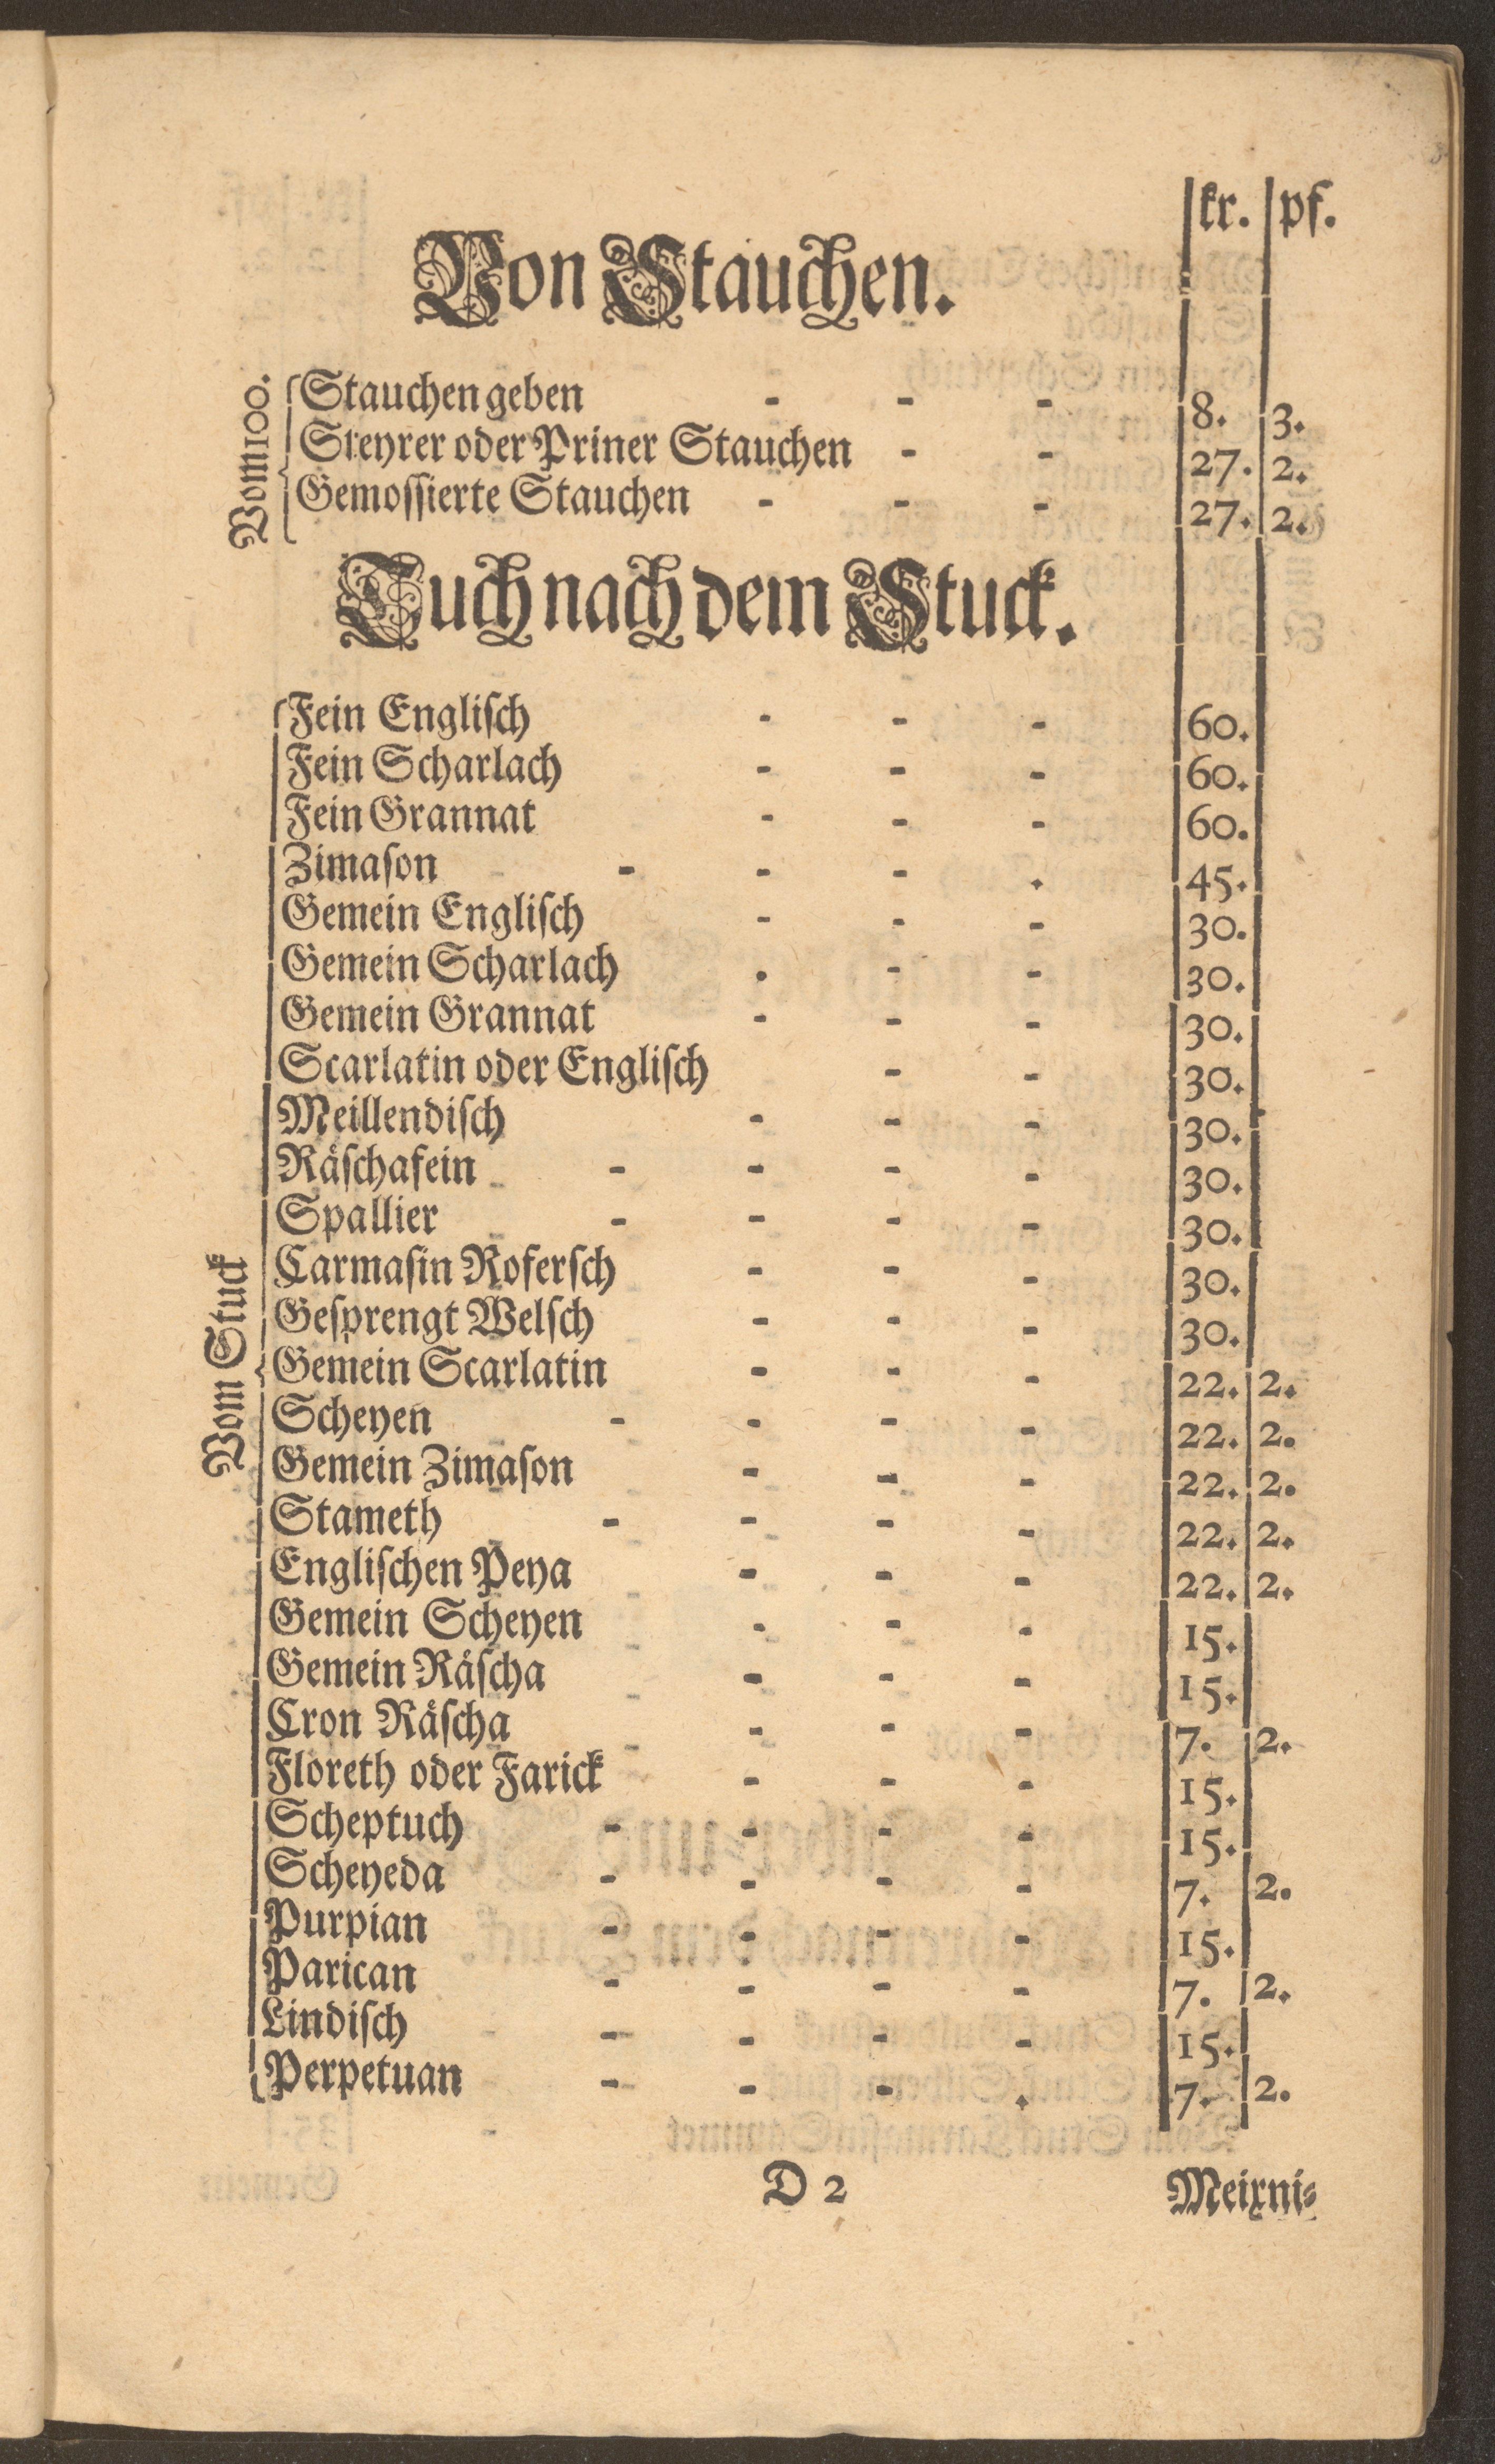 kr. pf.
Von Stauchen.
Vom 100.
Stauchen geben - - - 8. 3.
Steyrer oder Priner Stauchen - - 27. 2.
Gemossierte Stauchen - - - 27. 2.
Tuch nach dem Stuck.
Vom Stuck
Fein Englisch - - - 60.
Fein Scharlach - - - 60.
Fein Grannat - - - 60.
Zimason - - - . 45.
Gemein Englisch - - - 30.
Gemein Scharlach . - - 30.
Gemein Grannat - - - 30.
Scarlatin oder Englisch - - 30.
Meillendisch - - - 30.
Räschafein - - - - 30.
Spallier - - - - 30.
Carmasin Rofersch - - - 30.
Gesprengt Welsch - - - 30.
Gemein Scarlatin - - - 22. 2.
Scheyen - - - - 22. 2.
Gemein Zimason - - - 22. 2.
Stameth - - - - 22. 2.
Englischen Peya - - - 22. 2.
Gemein Scheyen - - - 15.
Gemein Räscha - - - 15.
Cron Räscha - - - 7. 2.
Floreth oder Farick - - - 15.
Scheptuch - - - - 15.
Scheyeda - - - - 7. 2.
Purpian - - - - 15.
Parican - - - - 7. 2.
Lindisch - - - - 15.
Perpetuan - - - . 7. 2.
D 2 Meixni⸗